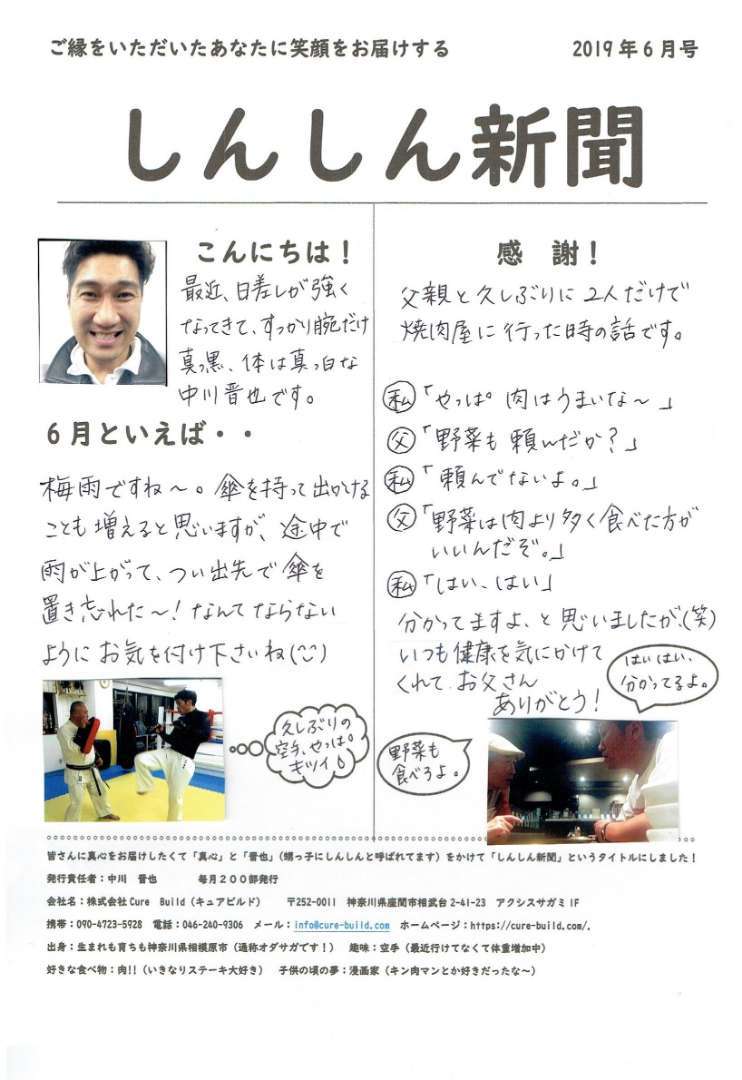 ご縁をいただいたあなたに笑顔をお届けする
2019年6月号
しんしん新聞
こんにちは！
最近、日差しが強く
なってきて、すっかり腕だけ
真っ黒、体は真っ白な
中川晋也です。
6月といえば・・
梅雨ですね〜。傘を持って出かける
ことも増えると思いますが、途中で
雨が上がって、つい出先で傘を
置き忘れた〜！なんてならない
ようにお気を付け下さいね(^^)
久しぶりの
空手、やっぱ
キツイ
感　謝！
父親と久しぶりに2人だけで
焼肉屋に行った時の話です。
私「やっぱ肉はうまいな〜」
父「野菜も頼んだか？」
私「頼んでないよ。」
父「野菜は肉より多く食べた方が
いいんだぞ。」
私「はい、はい」
分かってますよ、と思いましたが、(笑)
いつも健康を気にかけて
くれて、お父さん
ありがとう！
はいはい、
分かってるよ。
野菜も
食べろよ。
皆さんに真心をお届けしたくて「真心」と「晋也」(甥っ子にしんしんと呼ばれてます)をかけて「しんしん新聞」というタイトルにしました！
発行責任者：中川　晋也　　　毎月200部発行
会社名：株式会社Cure Build（キュアビルド）　〒252-0011　神奈川県座間市相武台2-41-23　アクシスサガミ1F
携帯：090-4723-5928　電話：046-240-9306　メール：info@cure-build.com　ホームページ：https://cure-build.com/.
出身：生まれも育ちも神奈川県相模原市（通称オダサガです！）　趣味：空手（最近行けてなくて体重増加中）
好きな食べ物：肉!!（いきなりステーキ大好き）　子供の頃の夢：漫画家（キン肉マンとか好きだったな〜）